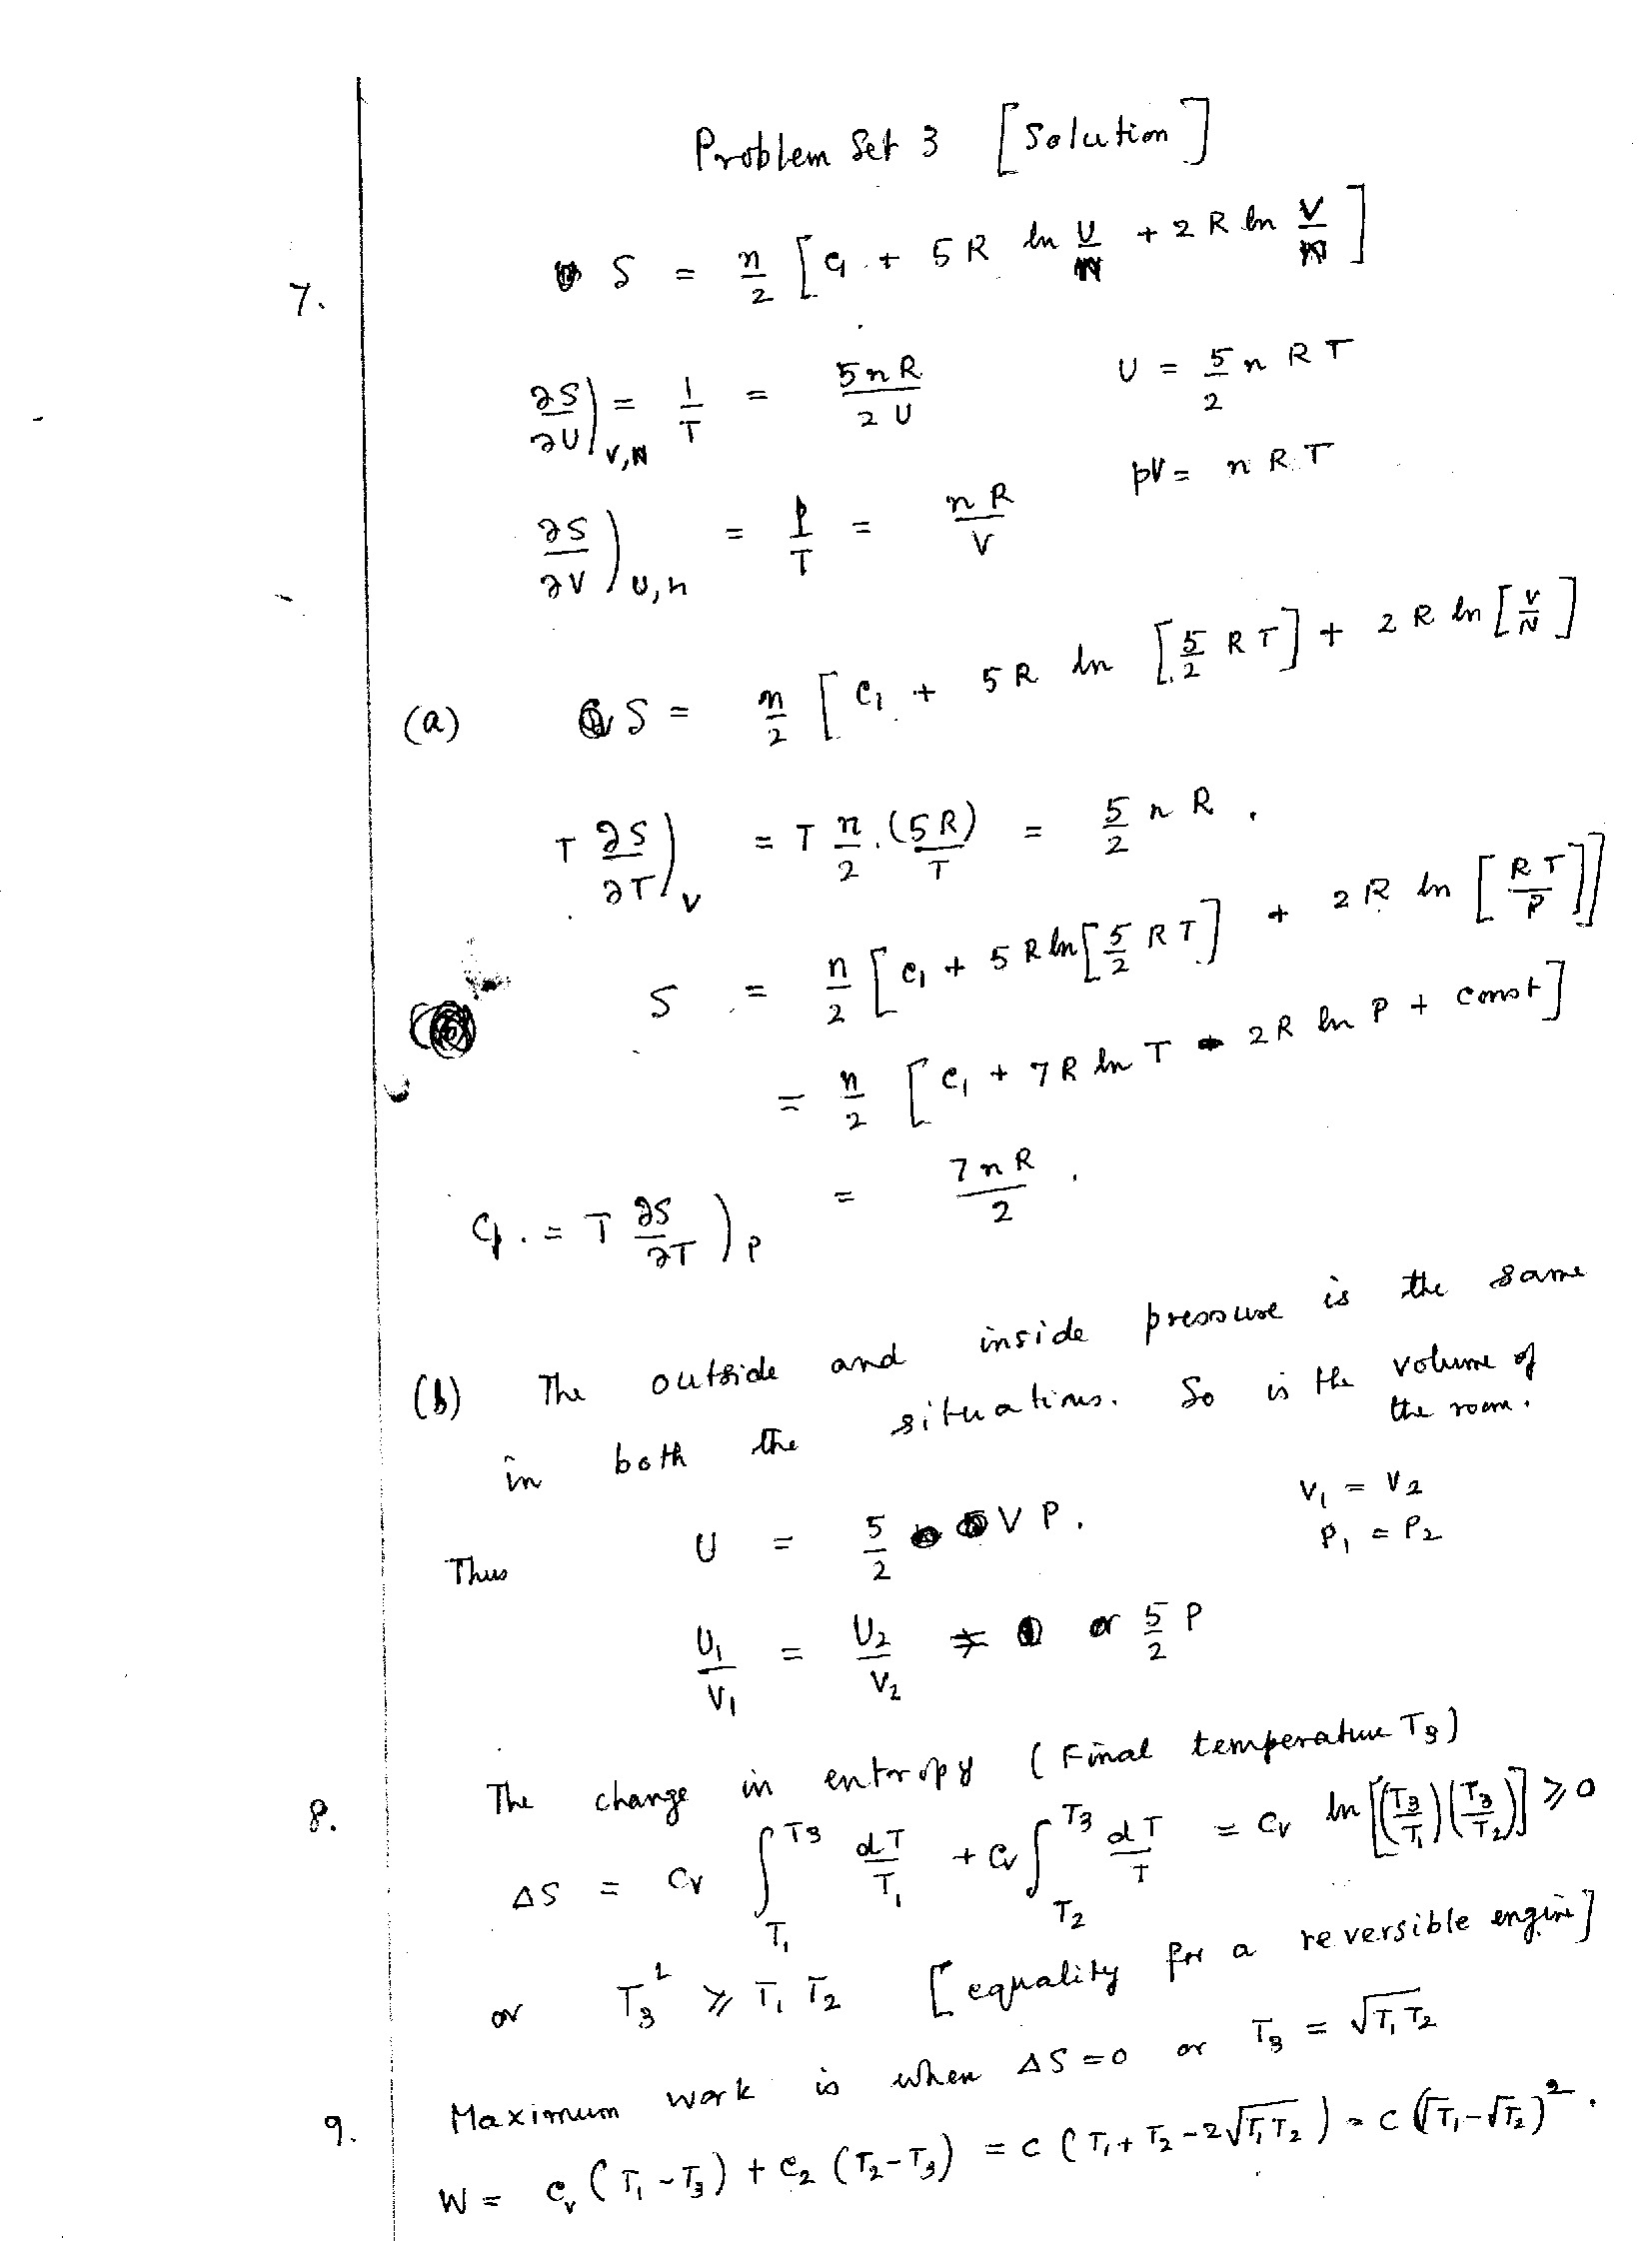 Problem Set 3 [Solution]
7. S = n/2 [C1 + 5R ln U/N + 2R ln V/N]
∂S/∂U)V,N = 1/T = 5nR/2U U = 5/2 n R T
pV = n R T
∂S/∂V)U,n = p/T = nR/V
(a) S = n/2 [C1 + 5R ln [5/2 RT] + 2R ln [V/N]
T ∂S/∂T)V = T n/2 . (5R)/T = 5/2 n R .
S = n/2 [C1 + 5R ln [5/2 RT] + 2R ln [RT/P]]
= n/2 [C1 + 7R ln T - 2R ln P + const]
Cp . = T ∂S/∂T)P = 7nR/2 .
(b) The outside and inside pressure is the same
in both the situations. So is the volume of
the room.
V1 = V2
Thus U = 5/2 V P. P1 = P2
U1/V1 = U2/V2 = or 5/2 P
8. The change in entropy (Final temperature T3)
ΔS = Cv ∫T1^T3 dT/T1 + Cv ∫T2^T3 dT/T = Cv ln [(T3/T1)(T3/T2)] ⩾ 0
or T3² ⩾ T1 T2 [equality for a reversible engine]
9. Maximum work is when ΔS = 0 or T3 = √T1T2
W = Cv (T1 - T3) + C2 (T2 - T3) = C (T1 + T2 - 2√T1T2) = C (√T1 - √T2)² .